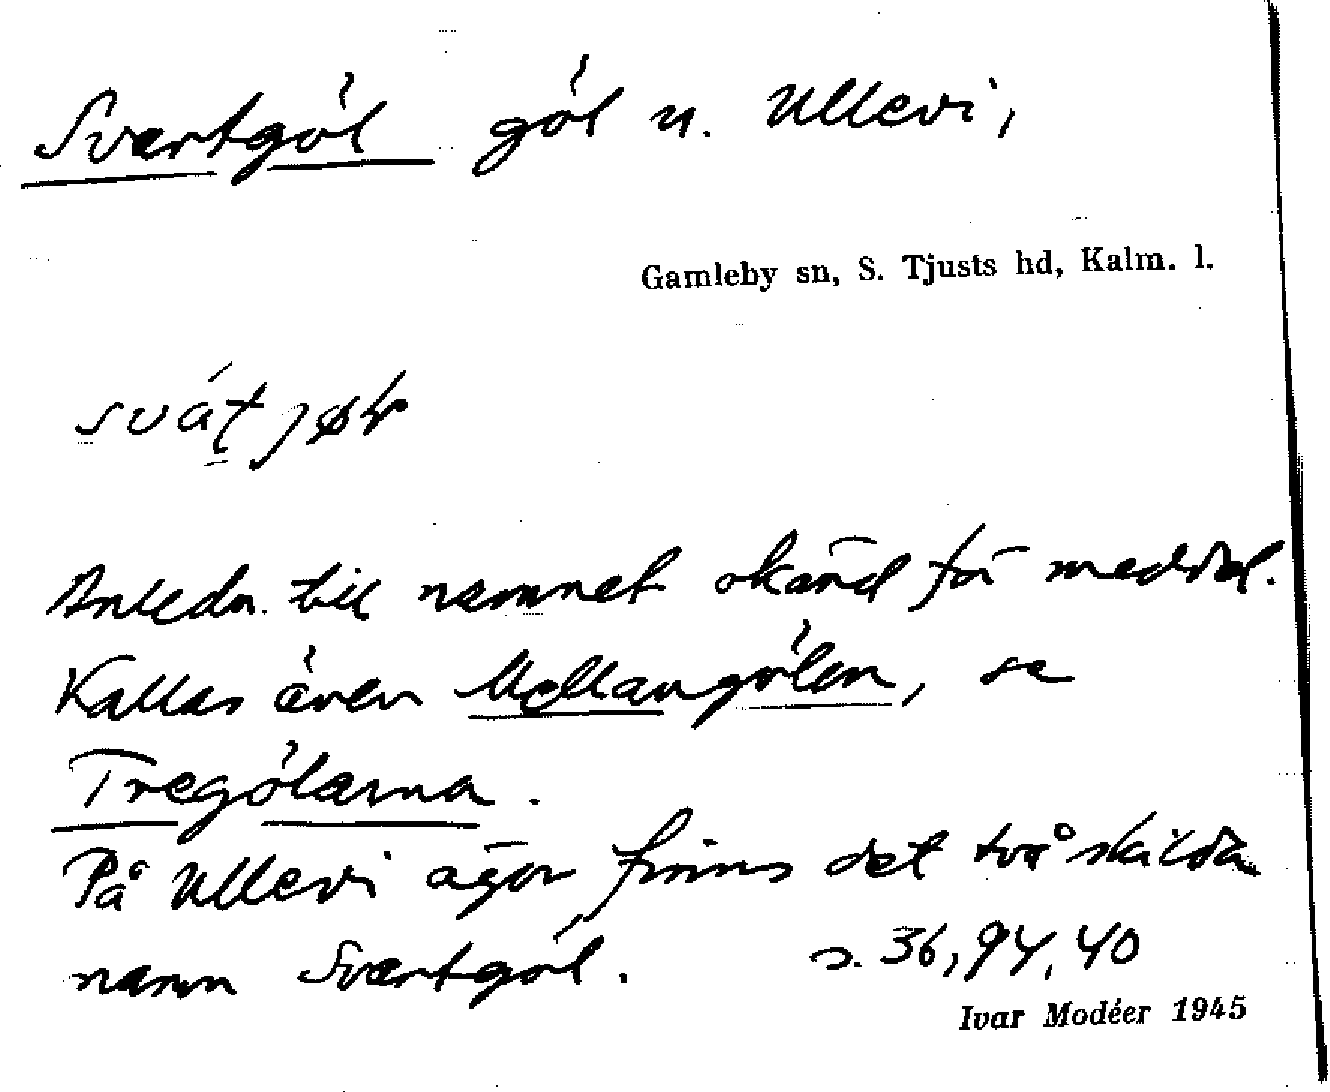 Svartgöl göl u. Ullevi,
Gamleby sn, S. Tjusts hd, Kalm. l.
Anledn. till namnet okänd för meddel.
Kallas även Mellangölen, se
Tregölarna.
På Ullevi ägor finns det två skilda
namn Svartgöl. s. 36, 94, 40
Ivar Modéer 1945